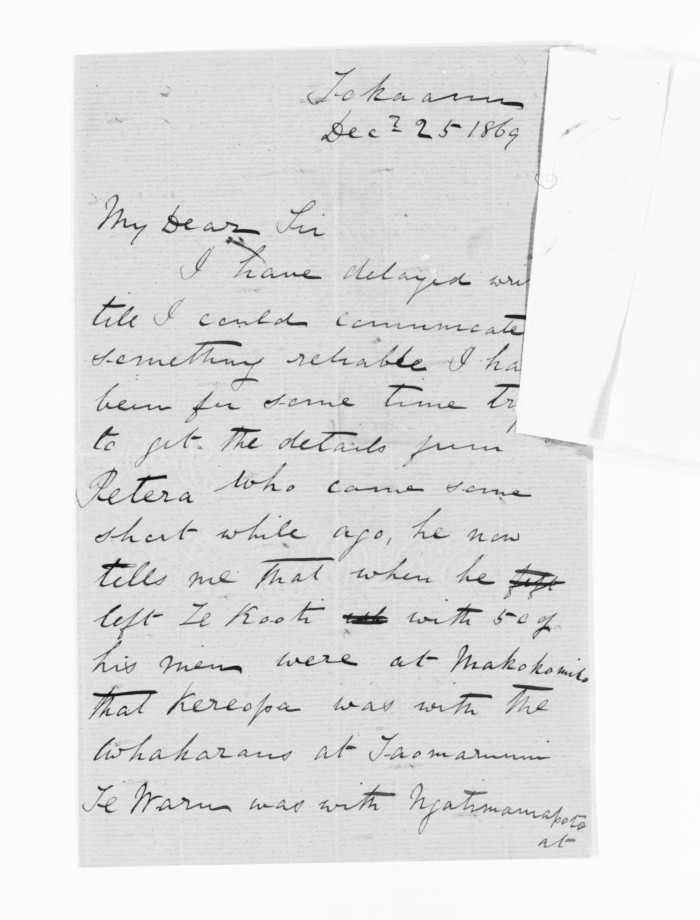 Tokaanu
Decr 25 1869
My Dear Sir
I have delayed wri
till I could comunicate
something reliable I ha
been for some time try
to get the details from
Petera who came some
short while ago, he now
tells me that when he left
left Te Kooti with 50 of
his men were at Makokomiko
that Kereopa was with the
Whakaraus at Taomarunui
Te Waru was with Ngatimaniapoto
at